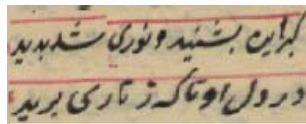 کبر این بشنید و نوری شد بدید
در دل او تا که زناری برید